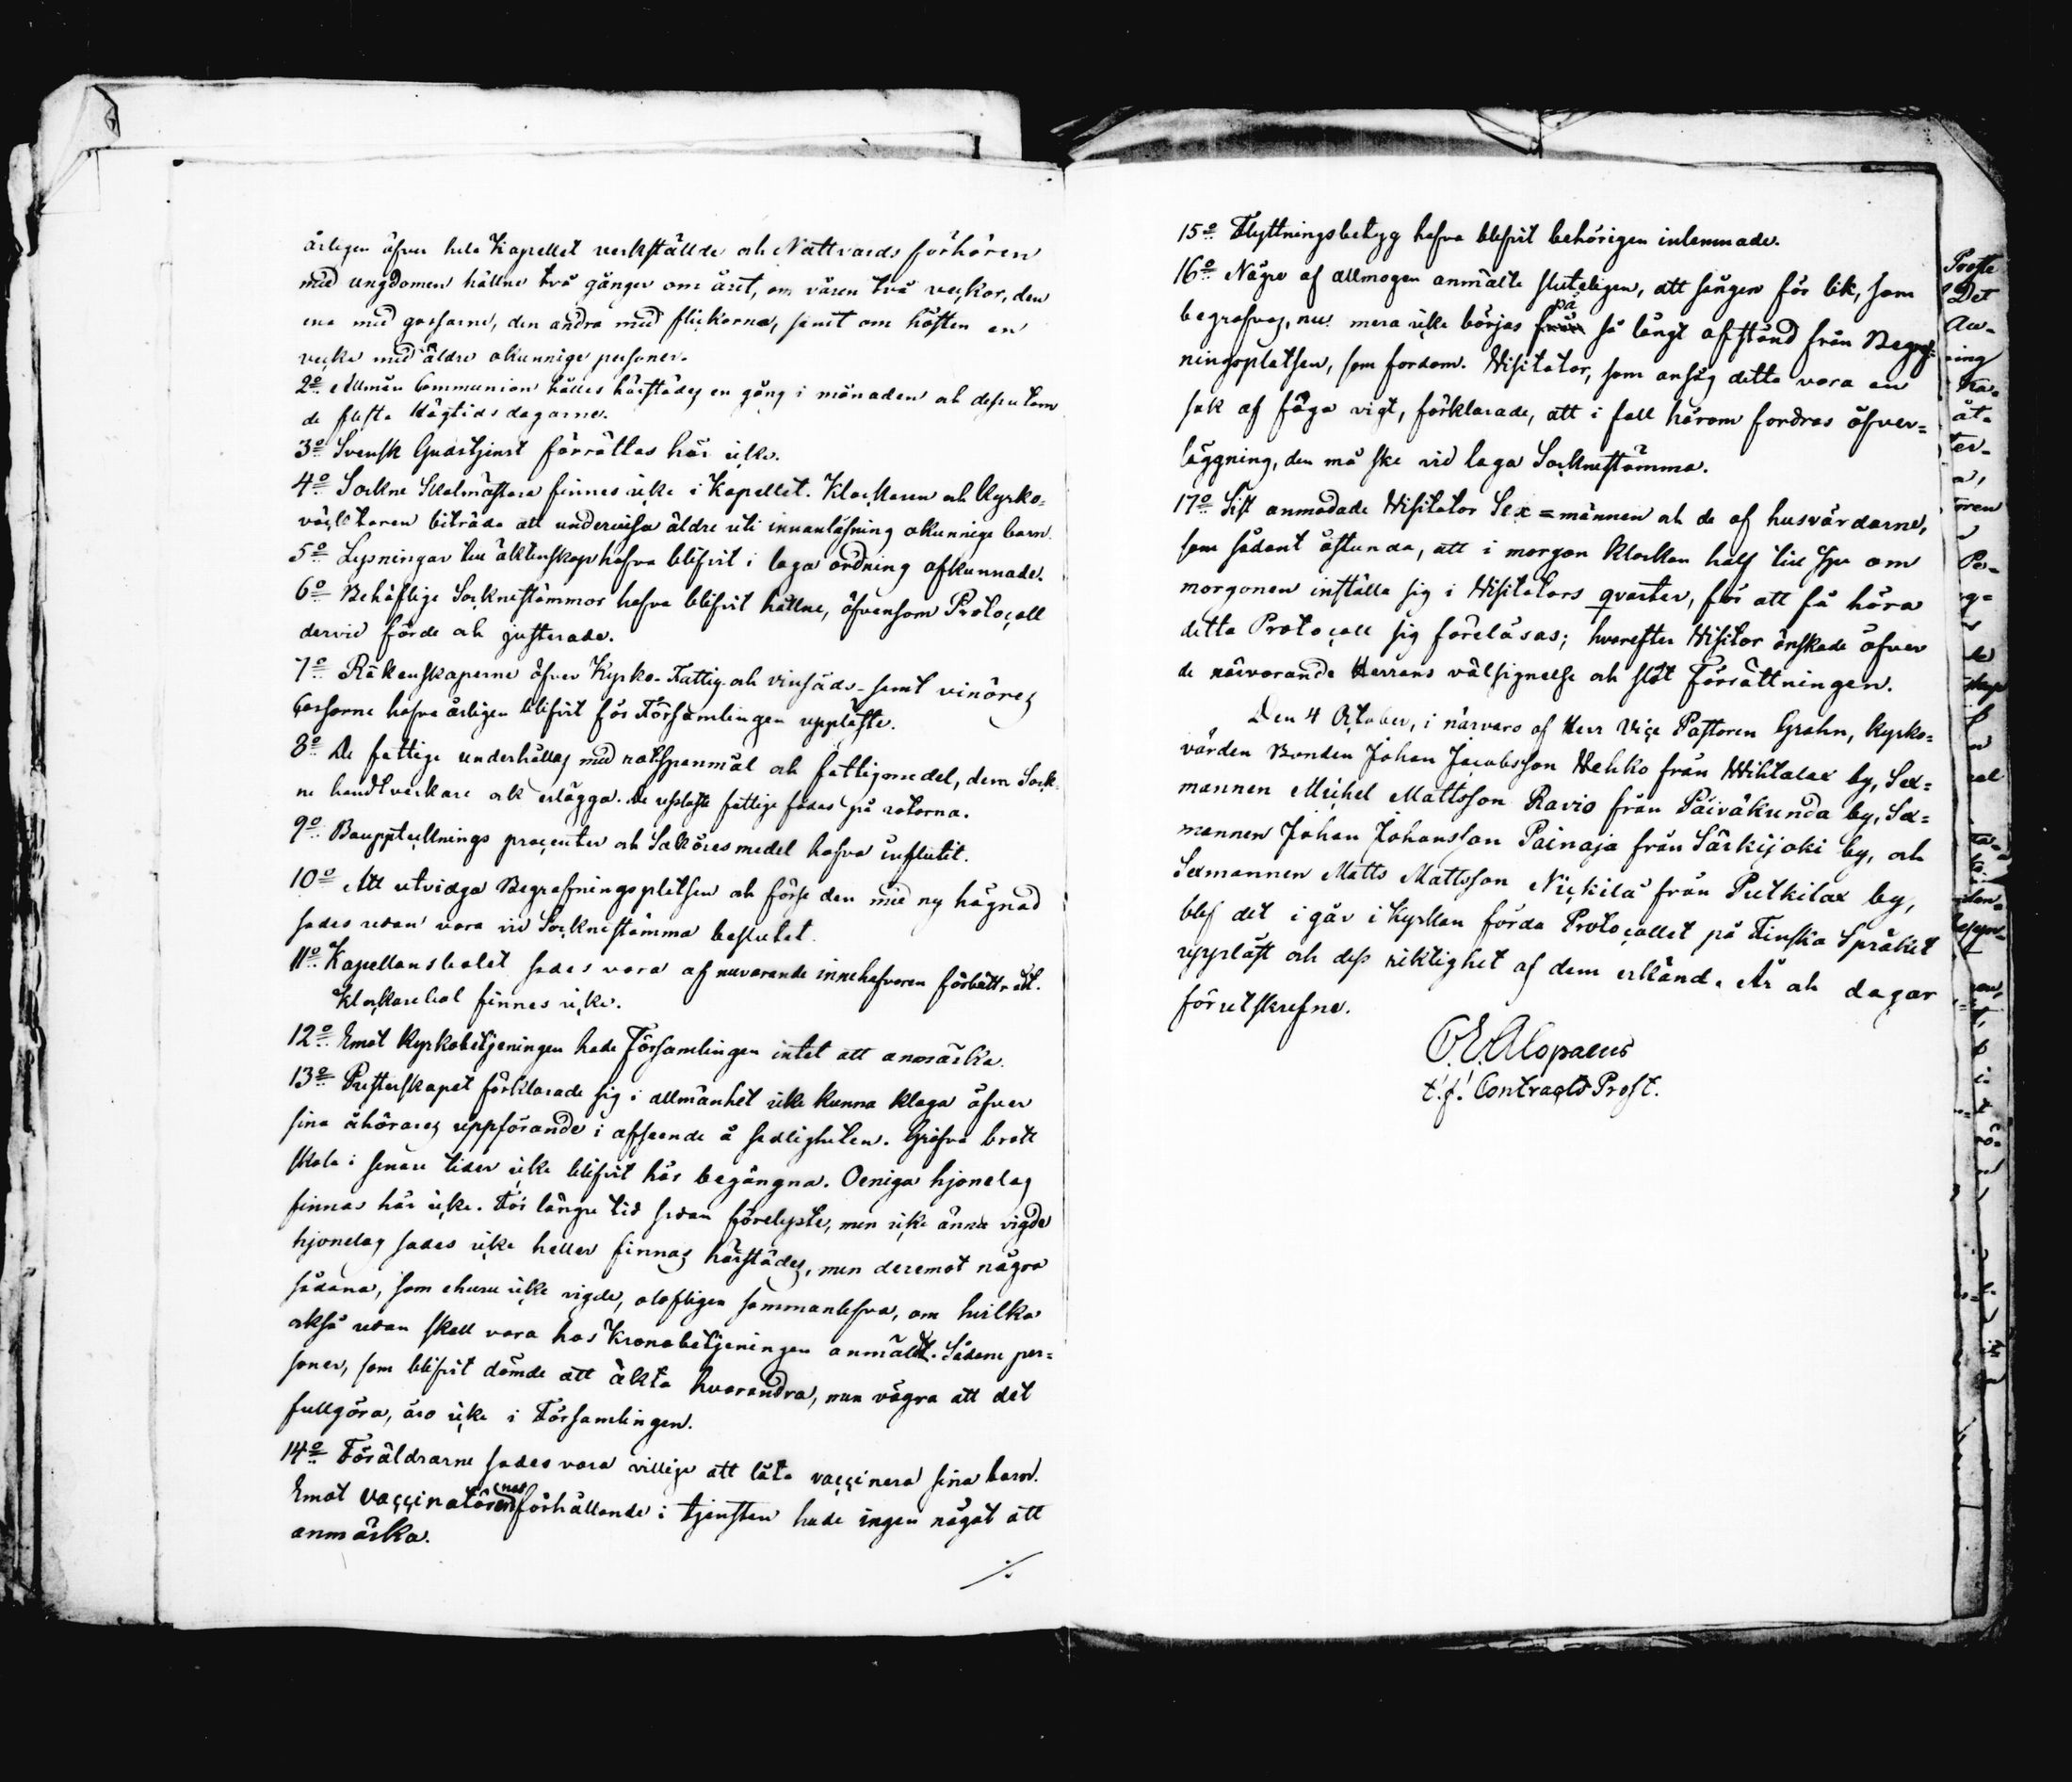 årligen öfver hela Kapellet verkställde och Nattvards förhören
med ungdomen hållne två gånger om året, om våren två veckor, den
ena med gossarne, den andra med flickorna, samt om hösten en
vecka med äldre okunnige personer.
2o Allmän Communion hålles härstädes en gång i månaden och dessutom
de flesta Högtids dagarne.
3o Svensk Gudstjenst förrättas här icke.
4o Sockne Skolmästare finnes icke i Kapellet. Klockaren och Kyrko-
väcktaren biträda att undervisa äldre uti innanläsning okunnige barn.
5o Lysningar till äktenskap hafva blifvit i laga ordning afkunnade.
6o Behöflige Socknestämmor hafva blifvit hållne, äfvensom Protocoll
dervid förde och justerade.
7o Räkenskaperne öfver Kyrko- Fattig- och vinsäds- samt vinöres
Cassorne hafva årligen blifvit för Församlingen uppläste.
8o De fattige underhållas med rotespanmål och fattigmedel, dem Sock-
ne handtverkare ock erlägga. De usslaste fattige födas på rotorna.
9o Boupptecknings procenter och Saköresmedel hafva influtit.
10o Att utvidga Begrafningsplatsen och förse den med ny hägnad
sades redan vara vid Socknestämma beslutet.
11o Kapellansbolet sades vara af nuvarande innehafvaren förbättradt.
Klockarebol finnes icke.
12o Emot Kyrkobetjeningen hade Församlingen intet att anmärka.
13o Presterskapet förklarade sig i allmänhet icke kunna klaga öfver
sina åhörares uppförande i afseende å sedligheten. Gröfva brott
skola i senare tider icke blifvit här begångna. Oeniga hjonelag
finnas här icke. För längre tid sedan förelyste, men icke ännu vigde
hjonelag sades icke heller finnas härstädes, men deremot några
sådana, som ehuru icke vigde, olofligen sammanlefva, om hvilka
också redan skall vara hos Kronobetjeningen anmäldt. Sådane per-
soner, som blifvit dömde att äkta hvarandra, men vägra att det
fullgöra, äro icke i Församlingen.
14o Föräldrarne sades vara villige att låta vaccinera sina barn.
Emot vaccinatörernes förhållande i tjensten hade ingen något att
anmärka.
./.
15o Flyttningsbetyg hafva blifvit behörigen inlemnade.
16o Några af allmogen anmälte sluteligen, att sången för lik, som
begrafvas, nu mera icke börjas på så långt afstånd från Begraf-
ningsplatsen, som fordom. Visitator, som ansåg detta vara en
sak af föga vigt, förklarade, att i fall härom fordras öfver-
läggning, den må ske vid laga Sockнestämma.
17o Sist anmodade Visitator Sex-männen och de af husvärdarne,
som sådant åstunda, att i morgon klockan half till sju om
morgonen inställa sig i Visitators qvarter, för att få höra
detta Protocoll sig föreläsas; hvarefter Visitor önskade öfver
de närvarande Herrans välsignelse och slöt Förrättningen.
Den 4 October, i närvaro af Herr Vice Pastoren Grahn, Kyrko-
värden Bonden Johan Jacobsson Wehko från Wihtalax by, Sex-
mannen Michel Mattsson Ravio från Päiväkunda by, Sex-
mannen Johan Johansson Painaja från Särkijoki by, och
Sexmannen Matts Mattsson Nickilä från Putkilax by,
blef det i går i Kyrkan förda Protocollet på Finska Språket
uppläst och dess riktighet af dem erkänd. År och dagar
förutskrefne.
O. E. Alopaeus
t. f. Contracts Prost.